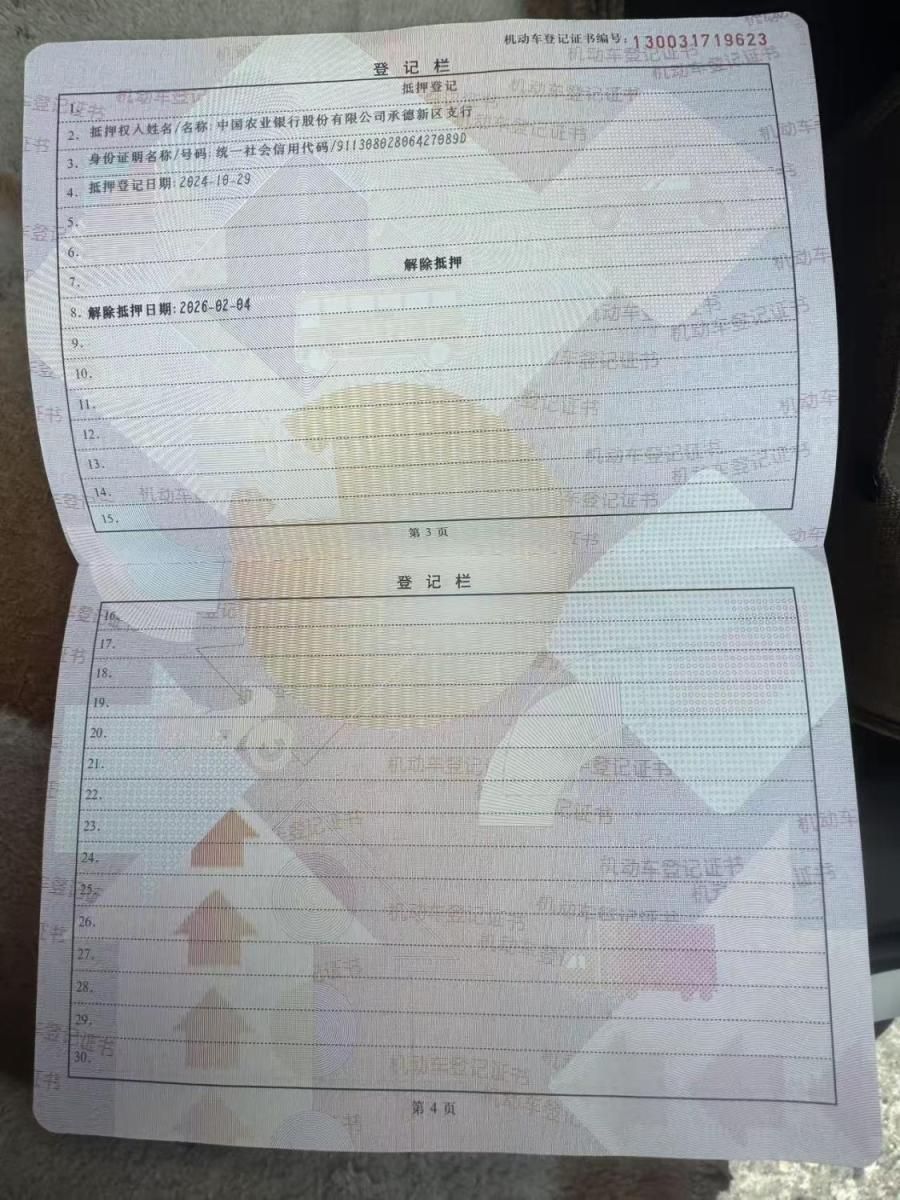 机动车登记证书编号：130031719623
登记栏
1. 抵押登记
2. 抵押权人姓名/名称:中国农业银行股份有限公司承德新区支行
3. 身份证明名称/号码:统一社会信用代码/91130802806427089D
4. 抵押登记日期:2024-10-29
5.
6.
7. 解除抵押
8. 解除抵押日期:2026-02-04
9.
10.
11.
12.
13.
14.
15.
第 3 页
登记栏
16.
17.
18.
19.
20.
21.
22.
23.
24.
25.
26.
27.
28.
29.
30.
第 4 页